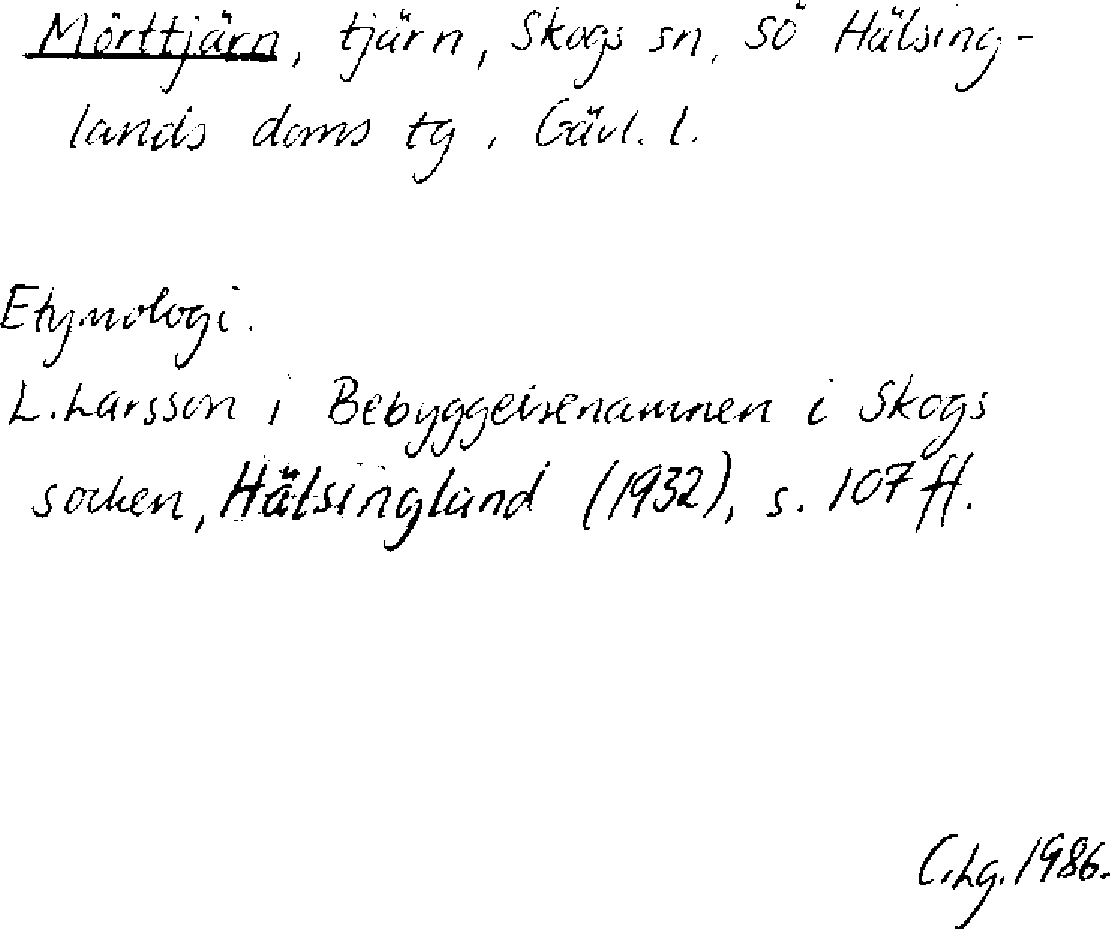 Mörttjärn, tjärn, Skogs sn, SÖ Hälsing-
lands doms tg, Gävl. l.
Etymologi.
L. Larsson i Bebyggelsenamnen i Skogs
socken, Hälsingland (1932), s. 107 ff.
C. Lg. 1986.